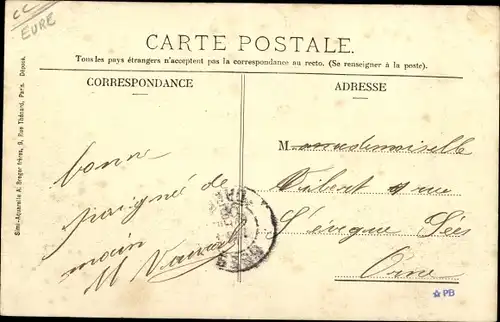 CC
EURE
CARTE POSTALE.
Tous les pays étrangers n'acceptent pas la correspondance au recto. (Se renseigner à la poste).
CORRESPONDANCE
ADRESSE
Simili-Aquarelle A. Breger frères, 9, Rue Thénard, Paris. Déposé.
bonne
poignée de
main
M
Mademoiselle
rue
l'évêque Sées
Orne
PB